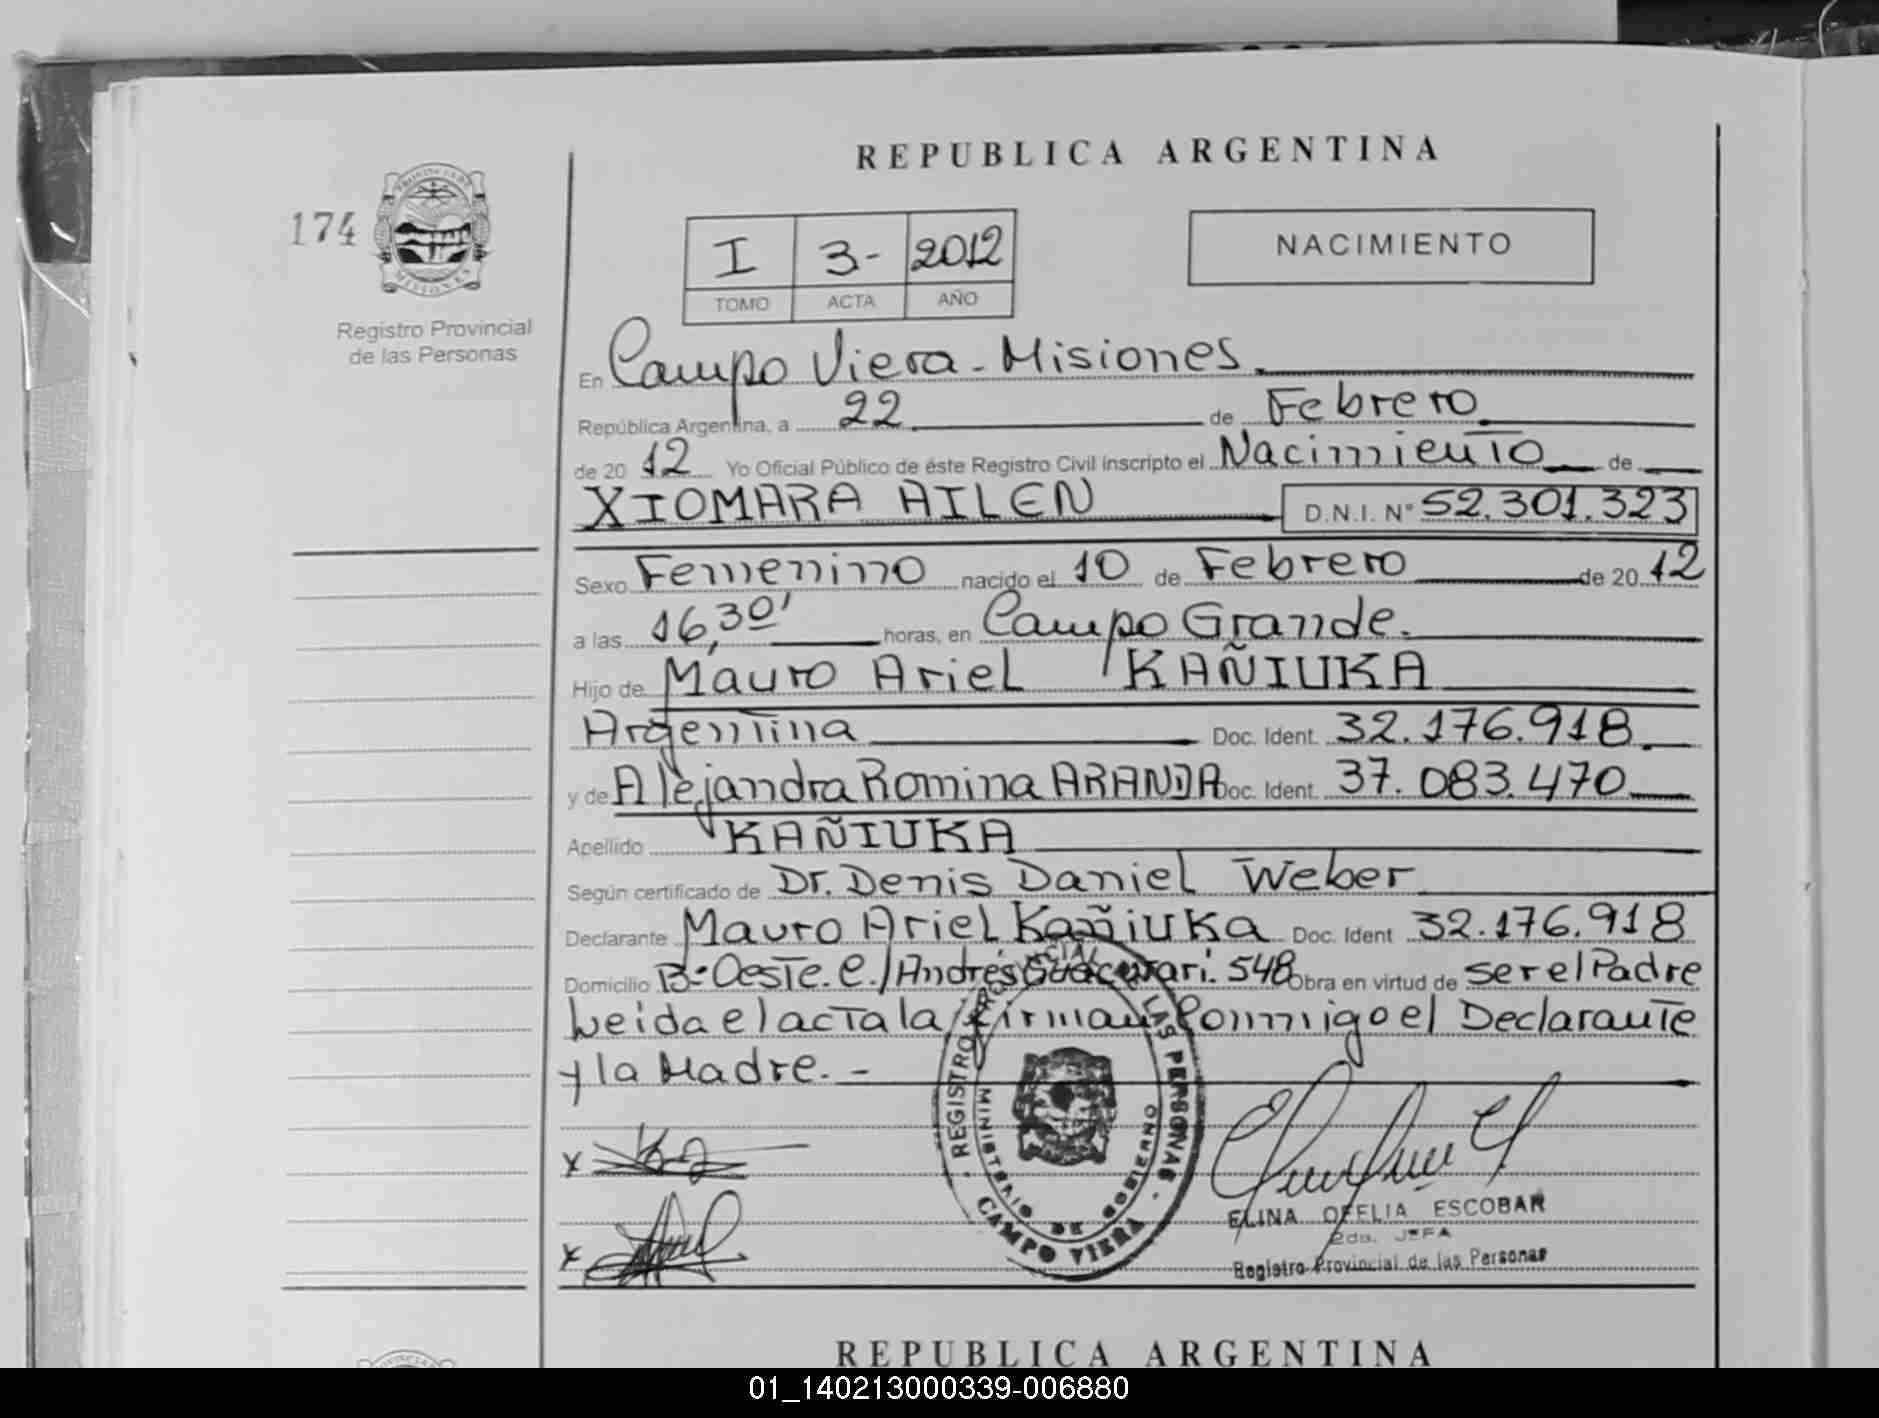 REPUBLICA ARGENTINA
174
PROVINCIA DE
MISIONES
Registro Provincial
de las Personas
I 3- 2012
TOMO ACTA AÑO
NACIMIENTO
En Campo Viera - Misiones.
República Argentina, a 22 de Febrero
de 20 12 Yo Oficial Público de éste Registro Civil inscripto el Nacimiento de
XIOMARA AILEN D.N.I. N° 52.301.323
Sexo Femenino nacido el 10 de Febrero de 20 12
a las 16,30' horas, en Campo Grande.
Hijo de Mauro Ariel KAÑIUKA
Argentina Doc. Ident. 32.176.918.
y de Alejandra Romina ARANDA Doc. Ident. 37.083.470
Apellido KAÑIUKA
Según certificado de Dr. Denis Daniel Weber
Declarante Mauro Ariel Kañiuka Doc. Ident 32.176.918
Domicilio B° Oeste. C./Andrés Guacurari. 548 Obra en virtud de ser el Padre
Leida el acta la firman Conmigo el Declarante
y la Madre. -
REGISTRO PROVINCIAL DE LAS PERSONAS
MINISTERIO DE GOBIERNO
CAMPO VIERA
x
x
ELINA OFELIA ESCOBAR
2da. JEFA
Registro Provincial de las Personas
REPUBLICA ARGENTINA
01_140213000339-006880